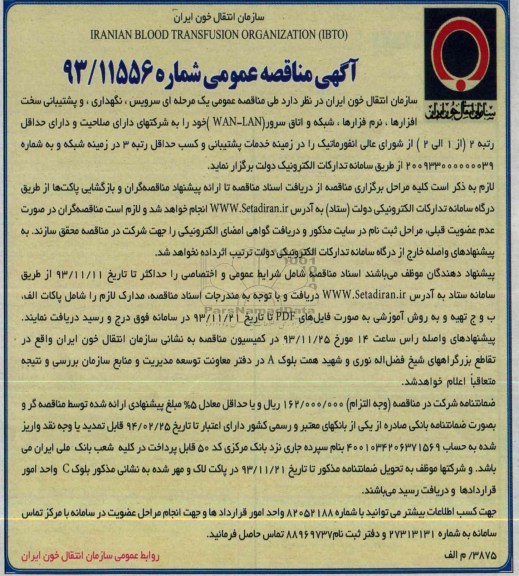 سازمان انتقال خون ایران
IRANIAN BLOOD TRANSFUSION ORGANIZATION (IBTO)
آگهی مناقصه عمومی شماره ۹۳/۱۱۵۵۶
سازمان انتقال خون ایران
سازمان انتقال خون ایران در نظر دارد طی مناقصه عمومی یک مرحله ای سرویس ، نگهداری ، و پشتیبانی سخت
افزارها ، نرم فزارها ، شبکه و اتاق سرور(WAN-LAN )خود را به شرکتهای دارای صلاحیت و دارای حداقل
رتبه ۲ (از ۱ الی ۲ ) از شورای عالی انفورماتیک را در زمینه خدمات پشتیبانی و کسب حداقل رتبه ۳ در زمینه شبکه و به شماره
۲۰۰۹۳۳۰۰۰۰۰۰۰۳۹ از طریق سامانه تدارکات الکترونیک دولت برگزار نماید.
لازم به ذکر است کلیه مراحل برگزاری مناقصه از دریافت اسناد مناقصه تا ارائه پیشنهاد مناقصه‌گران و بازگشایی پاکت‌ها از طریق
درگاه سامانه تدارکات الکترونیکی دولت (ستاد) به آدرس WWW.Setadiran.ir انجام خواهد شد و لازم است مناقصه‌گران در صورت
عدم عضویت قبلی، مراحل ثبت نام در سایت مذکور و دریافت گواهی امضای الکترونیکی را جهت شرکت در مناقصه محقق سازند. به
پیشنهادهای واصله خارج از درگاه سامانه تدارکات الکترونیکی دولت ترتیب اثرداده نخواهد شد.
پیشنهاد دهندگان موظف می‌باشند اسناد مناقصه شامل شرایط عمومی و اختصاصی را حداکثر تا تاریخ ۹۳/۱۱/۱۱ از طریق
سامانه ستاد به آدرس WWW.Setadiran.ir دریافت و با توجه به مندرجات اسناد مناقصه، مدارک لازم را شامل پاکات الف،
ب و ج تهیه و به روش آموزشی به صورت فایل‌های PDF تا تاریخ ۹۳/۱۱/۲۱ در سامانه فوق درج و رسید دریافت نمایند.
پیشنهادهای واصله راس ساعت ۱۴ مورخ ۹۳/۱۱/۲۵ در کمیسیون مناقصه به نشانی سازمان انتقال خون ایران واقع در
تقاطع بزرگراههای شیخ فضل‌اله نوری و شهید همت بلوک A در دفتر معاونت توسعه مدیریت و منابع سازمان بررسی و نتیجه
متعاقبا اعلام خواهدشد.
ضمانتنامه شرکت در مناقصه (وجه التزام) ۱۶۲/۰۰۰/۰۰۰ ریال و یا حداقل معادل ۵% مبلغ پیشنهادی ارائه شده توسط مناقصه گر و
بصورت ضمانتنامه بانکی صادره از یکی از بانکهای معتبر و رسمی کشور دارای اعتبار تا تاریخ ۹۴/۰۲/۲۵ قابل تمدید یا وجه نقد واریز
شده به حساب ۴۰۰۱۰۳۴۲۰۶۳۷۱۵۶۹ بنام سپرده جاری نزد بانک مرکزی کد ۵۰ قابل پرداخت در کلیه شعب بانک ملی ایران می
باشد. و شرکتها موظف به تحویل ضمانتنامه مذکور تا تاریخ ۹۳/۱۱/۲۱ در پاکت لاک و مهر شده به نشانی مذکور بلوک C واحد امور
قراردادها و دریافت رسید می‌باشند.
جهت کسب اطلاعات بیشتر می توانید با شماره ۸۲۰۵۲۱۸۸ واحد امور قرارداد ها و جهت انجام مراحل عضویت در سامانه با مرکز تماس
سامانه به شماره ۲۷۳۱۳۱۳۱ و دفتر ثبت نام۸۸۹۶۹۷۳۷ تماس حاصل فرمائید.
۳۸۷۵/ م الف
روابط عمومی سازمان انتقال خون ایران
ParsNamadData